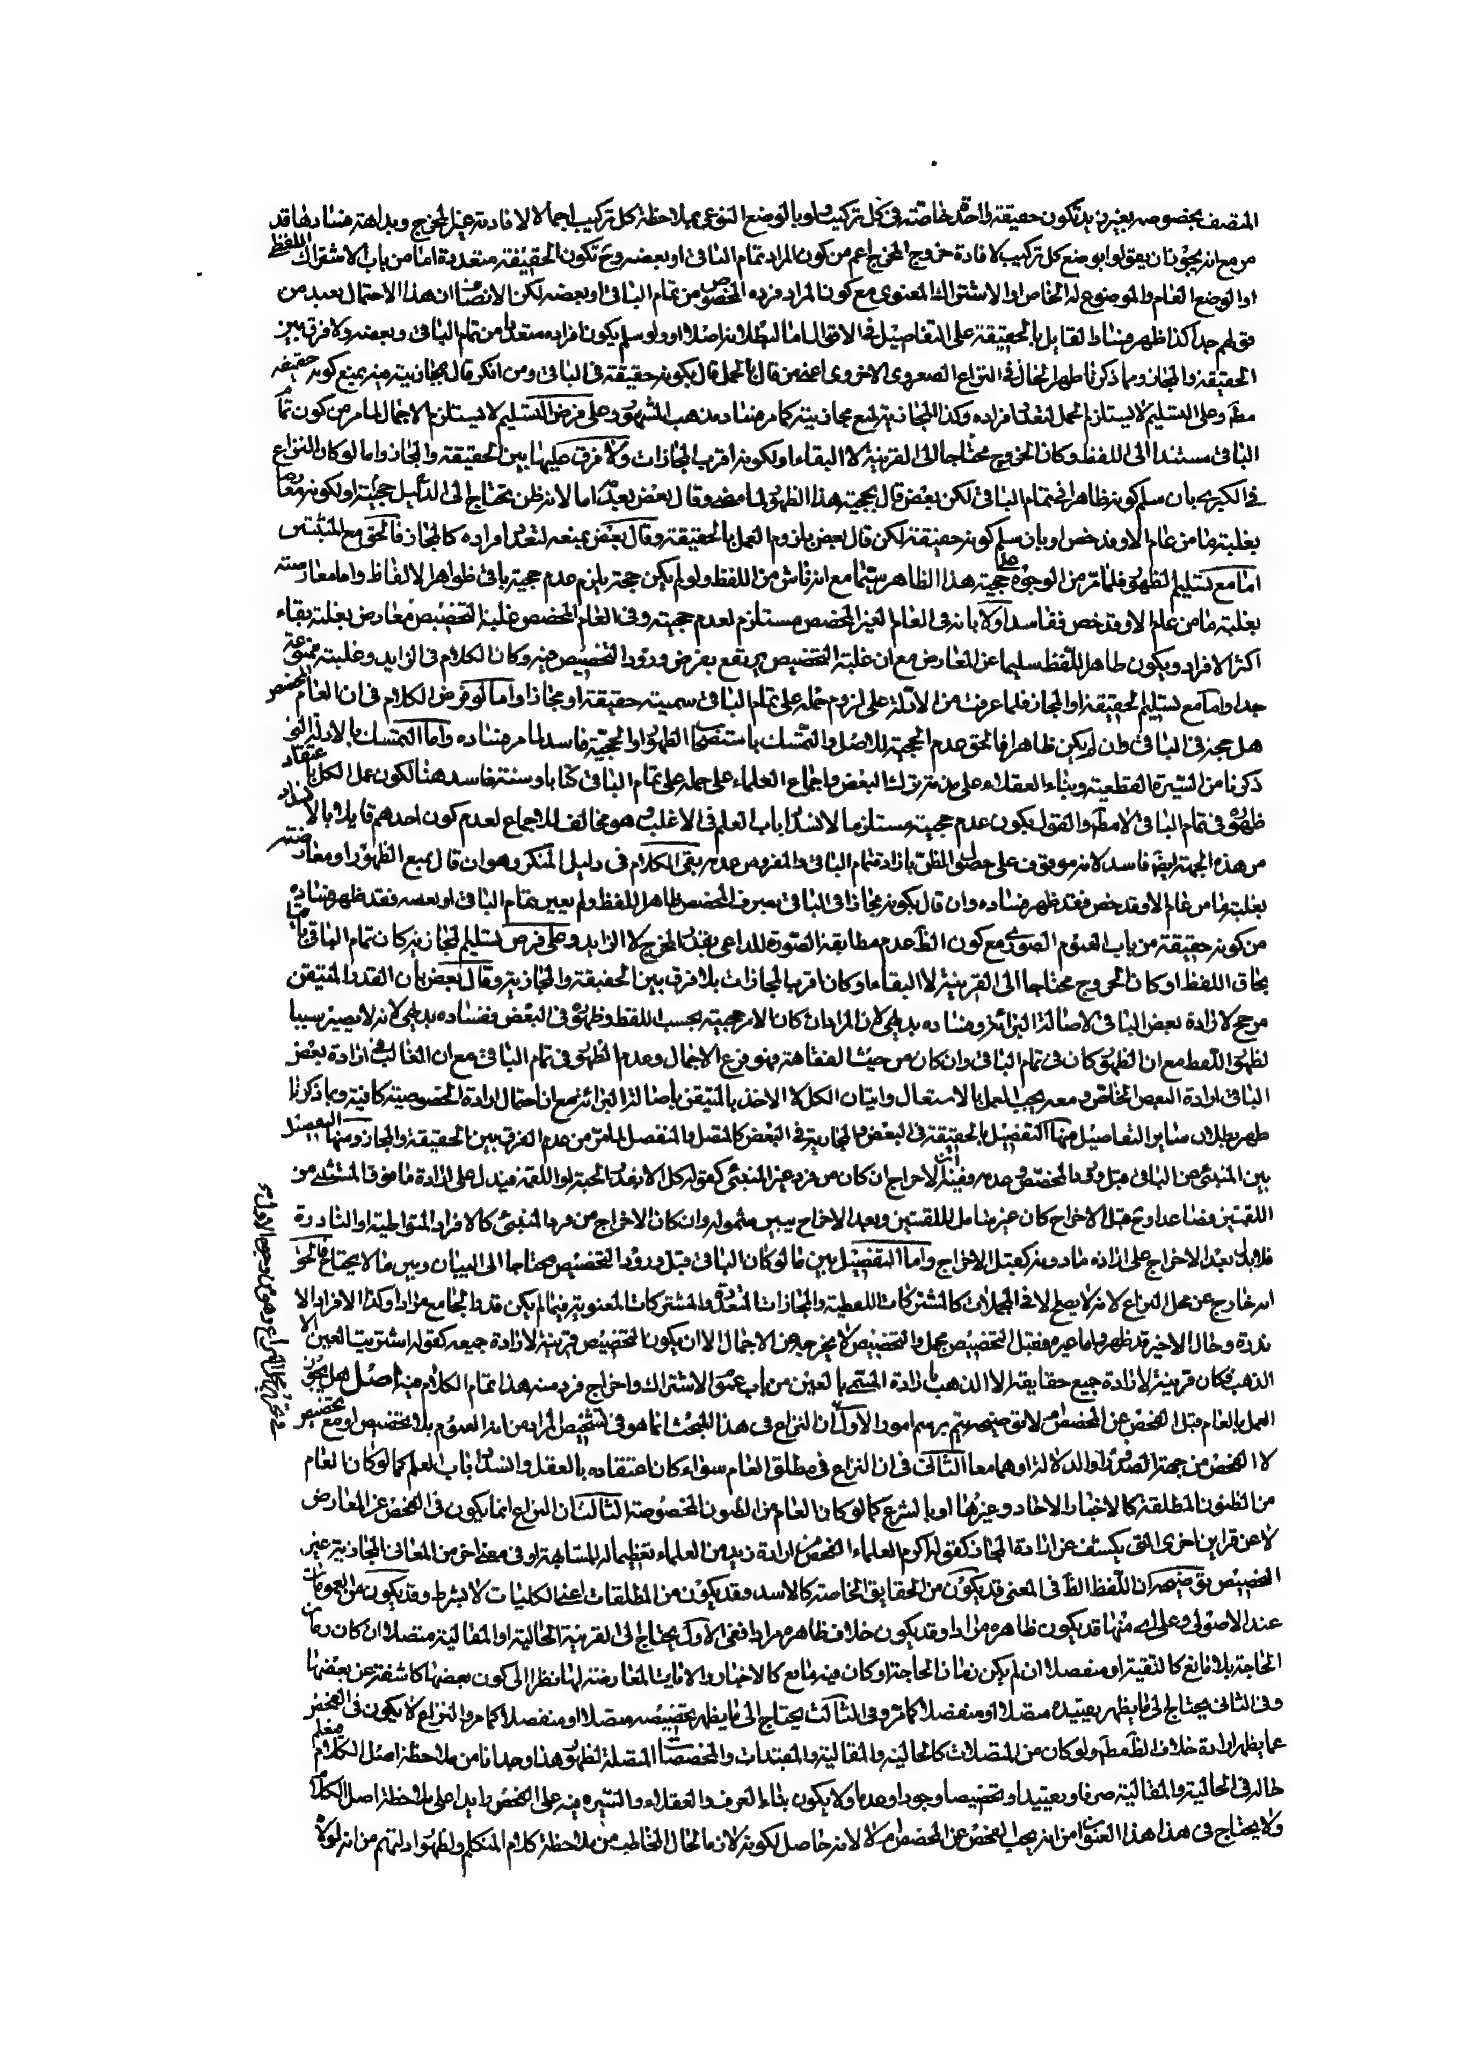 المتصف بخصوصه بغير زيد تكون حقيقة واحدة خاصة فى كل تركيب ولو بالوضع النوعى بملاحظة كل تركيب اجمالا لافادته غير المخرج وبداهة فساد هذا قد
مر مع انه يجوز ان يقولوا بوضع كل تركيب لافادة خروج المخرج اعم من كون المراد تمام الباقى او بعضه وح تكون الحقيقة متعددة اما من باب الاشتراك اللفظى
او الوضع العام والموضوع له الخاص او الاشتراك المعنوى مع كون المراد فرده المخصوص من تمام الباقى او بعضه لكن الانصاف ان هذا الاحتمال بعيد من
قولهم جدا كذا ظهر فساد القايل بالحقيقة على التفاصيل فى الاقوال اما لبطلانه اصلا او ولو سلم يكون افراده متعددا من تمام الباقى وبعضه ولا فرق بين
الحقيقة والمجاز ومما ذكرنا ظهر الحال فى النزاع الصغروى الاخروى اعنى من قال بالحمل قال بكونه حقيقة فى الباقى ومن انكر قال بمجازيته منه بمنع كونه حقيقة
مطم وعلى التسليم لا يستلزم الحمل لتعدد افراده وكذا المجازية لمنع مجازيته كما مر فساد مذهب المشهور وعلى فرض التسليم لا يستلزم الاجمال لما مر من كون تمام
الباقى مستندا الى اللفظ وكان الخروج محتاجا الى القرينة لا البقاء او لكونه اقرب المجازات ولا فرق عليهما بين الحقيقة والمجاز واما لو كان النزاع
فى الكبرى بان سلم كونه ظاهرا فى تمام الباقى لكن بعض قال بحجية هذا الظهور لما مضى وقال بعض بعدمه اما لانه ظن يحتاج الى الدليل حجيته او لكونه معارضا
بغلبة ما من عام الا وقد خص او بان سلم كونه حقيقة لكن قال بعض بلزوم العمل بالحقيقة وقال بعض بمنعه لتعدد افراده كالمجاز فالحق مع المثبتين
اما مع تسليم الظهور فلما مر من الوجوه على حجية هذا الظاهر سيما مع انه ناش من اللفظ ولو لم يكن حجة يلزم عدم حجية باقى ظواهر الالفاظ واما معارضته
بغلبة ما من عام الا وقد خص ففاسد اولا بانه فى العام الغير المخصص مستلزم لعدم حجيته وفى العام المخصص غلبة التخصيص معارض بغلبة بقاء
اكثر الافراد ويكون ظاهر اللفظ سليما عن المعارض مع ان غلبة التخصيص يرتفع بفرض ورود التخصيص فيه وكان الكلام فى الزايد وغلبته ممنوعة
جدا واما مع تسليم الحقيقة او المجاز فلما عرفت من الادلة على لزوم حمله على تمام الباقى سميته حقيقة او مجازا واما لو فرض الكلام فى ان العام المخصص
هل حجة فى الباقى وان لم يكن ظاهرا فالحق عدم الحجية للاصل والتمسك باستصحاب الظهور او الحجية فاسد لما مر فساده واما التمسك بالادلة التى
ذكرنا من السيرة القطعية وبناء العقلاء على مذمة ترك البعض واجماع العلماء على حمله على تمام الباقى كتابا وسنة فاسد هنا لكون عمل الكل باعتقاد
ظهوره فى تمام الباقى لا مطم والقول بكون عدم حجيته مستلزما لانسداد باب العلم فى الاغلب وهو مخالف للاجماع لعدم كون احدهم قايلا بالانسداد
من هذه الجهة ايضا فاسد لانه موقوف على حصول الظن بارادة تمام الباقى والمفروض عدمه بقى الكلام فى دليل المنكر وهو ان قال بمنع الظهور او معارضته
بغلبة ما من عام الا وقد خص فقد ظهر فساده وان قال بكونه مجازا فى الباقى بصرف المخصص ظاهر اللفظ ولم يعين تمام الباقى او بعضه فقد ظهر فساده
من كونه حقيقة من باب العموم الصورى مع كون الظ عدم مطابقة الصورة للداعى بقدر المخرج لا الزايد وعلى فرض تسليم المجازية كان تمام الباقى باقيا
بحاق اللفظ او كان الخروج محتاجا الى القرينة لا البقاء او كان اقرب المجازات بلا فرق بين الحقيقة والمجازية وقال بعض بان القدر المتيقن
مرجح لارادة بعض الباقى لاصالة البرائة وفساده بديهى لان المراد ان كان الامر حجيته بحسب اللفظ وظهوره فى البعض ففساده بديهى لانه لا يصير سببا
لظهور اللفظ مع ان الظهور كان فى تمام الباقى وان كان من حيث الفقاهة فهو فرع الاجمال وعدم الظهور فى تمام الباقى مع ان الغالب فى ارادة بعض
الباقى ارادة البعض الخاص ومعه يجب العمل بالاشتغال واتيان الكل لا الاخذ بالمتيقن باصالة البرائة مع ان احتمال ارادة الخصوصية كافية وبما ذكرنا
ظهر بطلان ساير التفاصيل منها التفصيل بالحقيقة فى البعض والمجازية فى البعض كالمتصل والمنفصل لما مر من عدم الفرق بين الحقيقة والمجاز ومنها التفصيل
بين المنبئ عن الباقى قبل ورود المخصص وعدمه وفيه ان الاخراج ان كان من فرد غير المنبئ كقوله كل الا بقدر الحبة او اللقمة فيدل على ارادة ما فوق المستثنى من
اللقمتين فصاعدا وح قبل الاخراج كان غير شامل للقمتين وبعد الاخراج يبين شموله وان كان الاخراج من فرد المنبئ كالافراد المتواطية او النادرة
فلا يدل بعد الاخراج على ارادة ما دونه كقبل الاخراج واما التفصيل بين ما لو كان الباقى قبل ورود التخصيص محتاجا الى البيان وبين ما لا يحتاج فالحق
انه خارج عن محل النزاع لانه لا يصلح الا فى المجملات كالمشتركات اللفظية والمجازات المتعددة والمشتركات المعنوية فيما لم يكن قدر الجامع مرادا وكذا الافراد الا
ندرة وحال الاخير قد ظهر واما غيره فقبل التخصيص مجمل والتخصيص لا يخرجه عن الاجمال الا ان يكون التخصيص قرينة لارادة جميعه كقوله اشتريت العين الا
الذهب فكان قرينة لارادة جميع حقايقه الا الذهب بارادة المسمى بالعين من باب عموم الاشتراك واخراج فرد منه هذا تمام الكلام فيه اصل هل يجوز
العمل بالعام قبل الفحص عن المخصص ام لا توضيحه يتم برسم امور الاول ان النزاع فى هذا المبحث انما هو فى تشخيص المراد من انه العموم بلا تخصيص او مع تخصيص
لا الفحص من جهة الصدور او الدلالة او هما معا الثانى فى ان النزاع فى مطلق العام سواء كان اعتقاده بالعقل وانسداد باب العلم كما لو كان العام
من الظنون المطلقة كالاخبار الاحاد وغيرها او بالشرع كما لو كان العام من الظنون المخصوصة الثالث ان النزاع انما يكون فى الفحص عن المعارض
لا عن قراين اخرى التى يكشف عن ارادة المجاز كقوله اكرم العلماء الفحص ارادة زيد من العلماء تعظيما له للمشابهة او فى معنى اخر من المعانى المجازية غير
التخصيص توضيحه ان اللفظ الظ فى المعنى قد يكون من الحقايق الخاصة كالاسد وقد يكون من المطلقات اعنى الكليات لا بشرط وقد يكون من العمومات
عند الاصولى وعلى اى منها قد يكون ظاهره مرادا وقد يكون خلاف ظاهره مرادا ففى الاول يحتاج الى القرينة الحالية او المقالية متصلا ان كان زمان
الحاجة بلا مانع كالتقية او منفصلا ان لم يكن زمان الحاجة او كان فيه مانع كالاخبار والايات المعارضة لها نظرا الى كون بعضها كاشفة عن بعضها
وفى الثانى يحتاج الى ما يظهر تقييده متصلا او منفصلا كما مر وفى الثالث يحتاج الى ما يظهر تخصيصه متصلا او منفصلا كما مر والنزاع لا يكون فى الفحص
عما يظهر ارادة خلاف الظ مطم ولو كان من المتصلات كالحالية والمقالية والمقيدات والمخصصات المتصلة لظهور هذا وجدانا من ملاحظة اصل الكلام فيعلم
حاله فى الحالية والمقالية صرفا وتقييدا وتخصيصا وجودا وعدما ولا يكون بناء العرف والعقلاء والسيرة فيه على الفحص زايدا على ملاحظة اصل الكلام
ولا يحتاج فى هذا هذا العنوان من انه يجب الفحص عن المخصص ام لا لانه حاصل لكونه لازما لحال المخاطب من ملاحظة كلام المتكلم ولظهور ادلتهم من انه لولاه